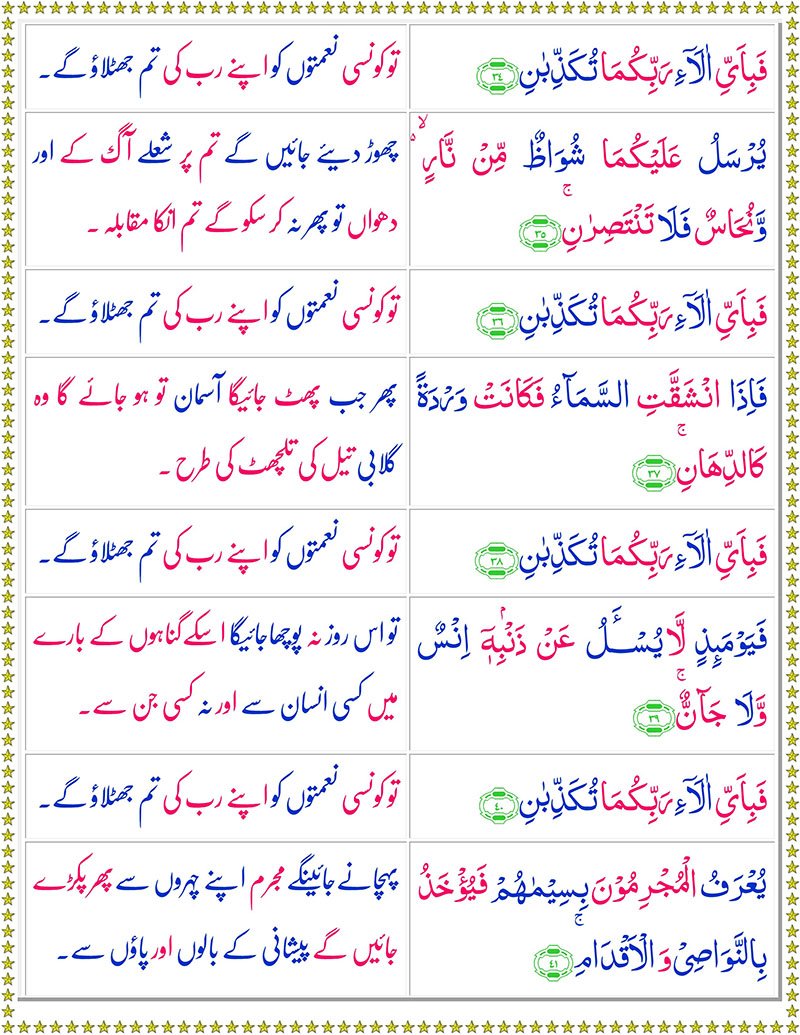 فَبِاَيِّ اٰلَآءِ رَبِّكُمَا تُكَذِّبٰنِ ﴿۳۴﴾
توکونسی نعمتوں کو اپنے رب کی تم جھٹلاؤ گے۔
يُرْسَلُ عَلَيْكُمَا شُوَاظٌ مِّنْ نَّارٍ ۙ
وَّنُحَاسٌ فَلَا تَنْتَصِرٰنِ ۚ﴿۳۵﴾
چھوڑ دیئے جائیں گے تم پر شعلے آگ کے اور
دھواں تو پھر نہ کر سکو گے تم انکا مقابلہ ۔
فَبِاَيِّ اٰلَآءِ رَبِّكُمَا تُكَذِّبٰنِ ﴿۳۶﴾
توکونسی نعمتوں کو اپنے رب کی تم جھٹلاؤ گے۔
فَاِذَا انْشَقَّتِ السَّمَآءُ فَكَانَتْ وَرْدَةً
كَالدِّهَانِ ۚ﴿۳۷﴾
پھر جب پھٹ جائیگا آسمان تو ہو جائے گا وہ
گلابی تیل کی تلچھٹ کی طرح ۔
فَبِاَيِّ اٰلَآءِ رَبِّكُمَا تُكَذِّبٰنِ ﴿۳۸﴾
توکونسی نعمتوں کو اپنے رب کی تم جھٹلاؤ گے۔
فَيَوْمَىِٕذٍ لَّا يُسْـَٔلُ عَنْ ذَنْۢبِهٖۤ اِنْسٌ
وَّلَا جَآنٌّ ۚ﴿۳۹﴾
تو اس روز نہ پوچھا جائیگا اسکے گناہوں کے بارے
میں کسی انسان سے اور نہ کسی جن سے۔
فَبِاَيِّ اٰلَآءِ رَبِّكُمَا تُكَذِّبٰنِ ﴿۴۰﴾
توکونسی نعمتوں کو اپنے رب کی تم جھٹلاؤ گے۔
يُعْرَفُ الْمُجْرِمُوْنَ بِسِيْمٰهُمْ فَيُؤْخَذُ
بِالنَّوَاصِيْ وَ الْاَقْدَامِ ۚ﴿۴۱﴾
پہچانے جائینگے مجرم اپنے چہروں سے پھر پکڑے
جائیں گے پیشانی کے بالوں اور پاؤں سے۔